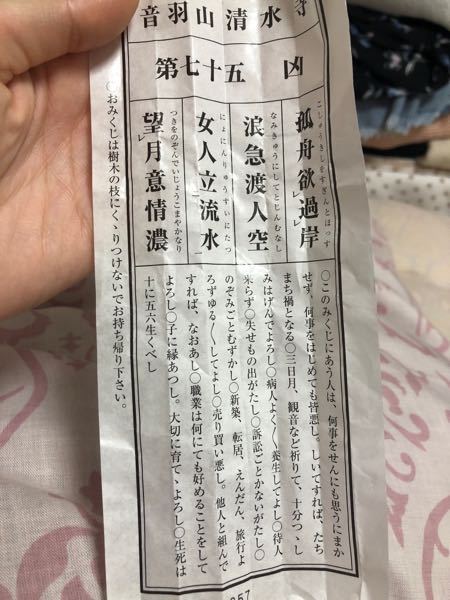 音羽山清水寺
第七十五 凶
孤舟欲過岸
こしゅうきしをすぎんとほっす
浪急渡人空
なみきゅうにしてとじんむなし
女人立流水
にょにんりゅうすいにたつ
望月意情濃
つきをのぞんでいじょうこまやかなり
〇このみくじにあう人は、何事をせんにも思うにまか
せず、何事をはじめても皆悪し。しいてすれば、たち
まち禍となる〇三日月、観音など祈りて、十分つゝし
みはげんでよろし〇病人よく〱養生してよし〇待人
来らず〇失せもの出がたし〇訴訟ごとかないがたし〇
のぞみごとむずかし〇新築、転居、えんだん、旅行よ
ろずゆる〱してよし〇売り買い悪し。他人と組んで
すれば、なおあし〇職業は何にても好めることをして
よろし〇子に縁あつし。大切に育てゝよろし〇生死は
十に五六生くべし
〇おみくじは樹木の枝にくゝりつけないでお持ち帰り下さい。
357